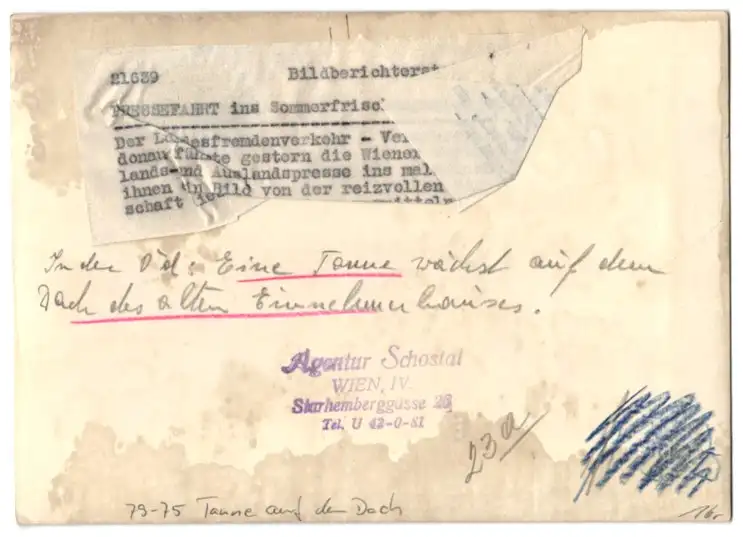 21639 Bildberichterst
PRESSEFAHRT ins Sommerfrisc
Der La desfremdenverkehr - Ve
donau fährte gestern die Wiener
lands-und Auslandspresse ins mal
ihnen in Bild von der reizvollen
schaft
In der Öd: Eine Tanne wächst auf dem
Dach des alten Einnehmerhauses.
Agentur Schostal
WIEN, IV.
Starhemberggasse 26
Tel. U 42-0-81
23a
79-75 Tanne auf dem Dach